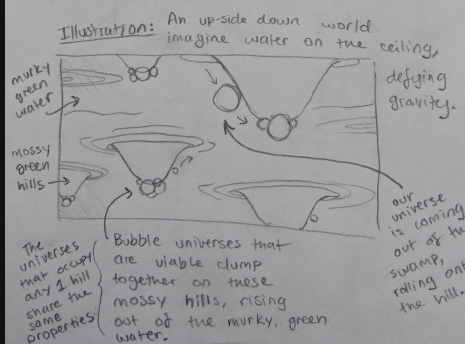 Illustration: An up-side down world.
imagine water on the ceiling,
defying
gravity.
murky
green
water
mossy
green
hills
The
universes
that occupy
any 1 hill
share the
same
properties.
Bubble universes that
are viable clump
together on these
mossy hills, rising
out of the murky, green
water.
our
universe
is coming
out of the
swamp,
rolling onto
the hill.